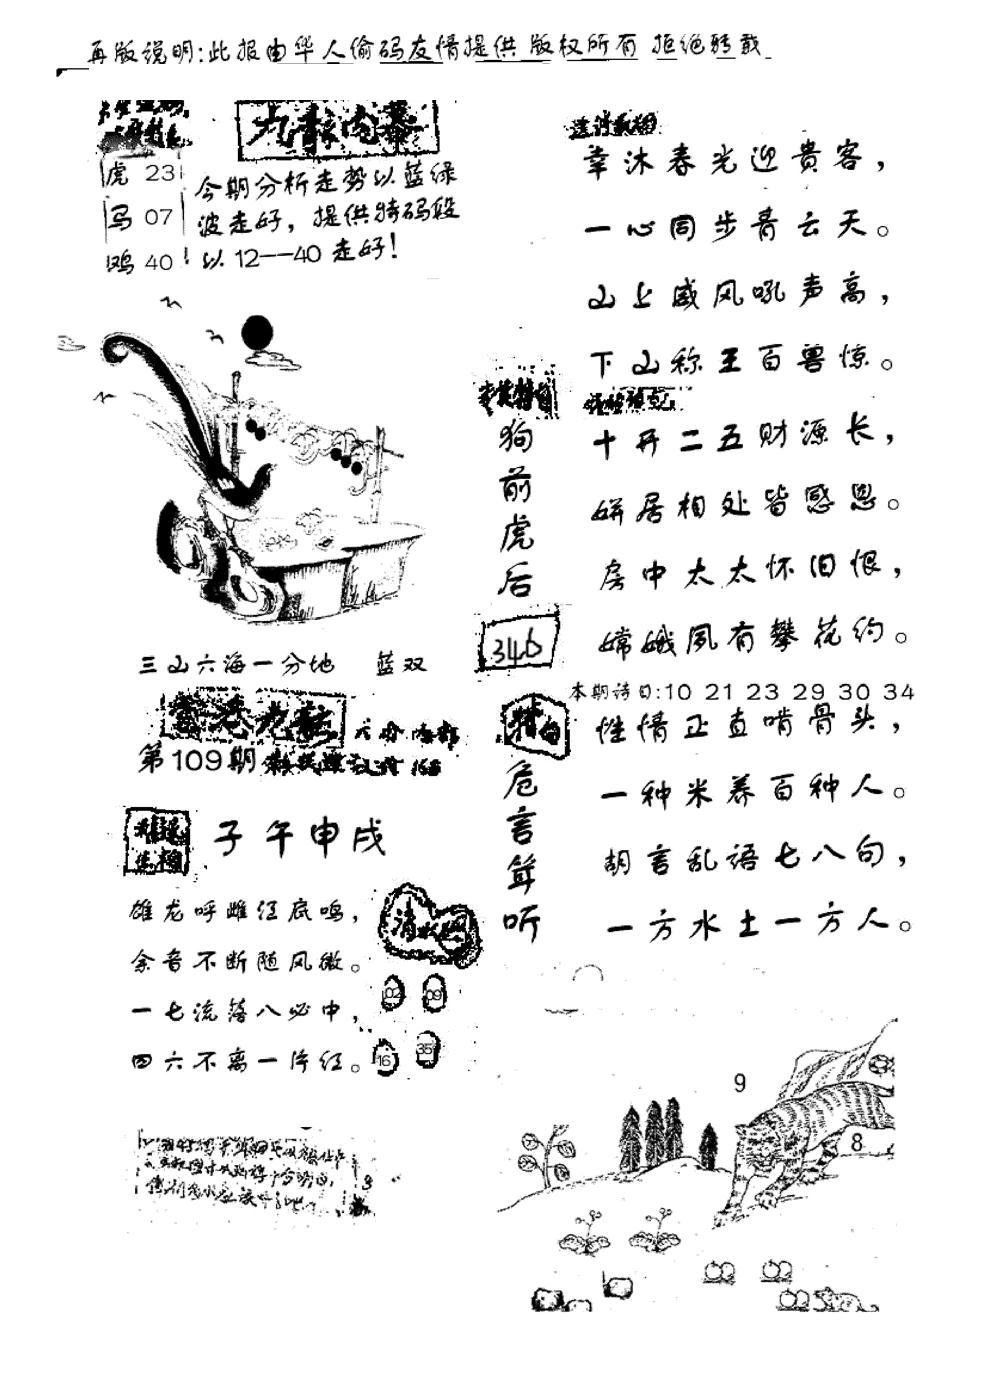 再版说明:此报由华人偷码友情提供 版权所有 拒绝转载
九龍内幕
虎 23
马 07
鸡 40
今期分析走势以蓝绿
波走好，提供特码段
以12--40走好！
三山六海一分地 蓝双
第109期
子午申戌
雄龙呼雌径底鸣，
余音不断随风微。
一七流落八必中，
四六不离一片红。
02 09
16 35
幸沐春光迎贵客，
一心同步青云天。
山上威风吼声高，
下山称王百兽惊。
狗前虎后
346
十开二五财源长，
姘居相处皆感恩。
房中太太怀旧恨，
嫦娥夙有攀花约。
本期诗日:10 21 23 29 30 34
特白
危言耸听
性情正直啃骨头，
一种米养百种人。
胡言乱语七八句，
一方水土一方人。
9
8